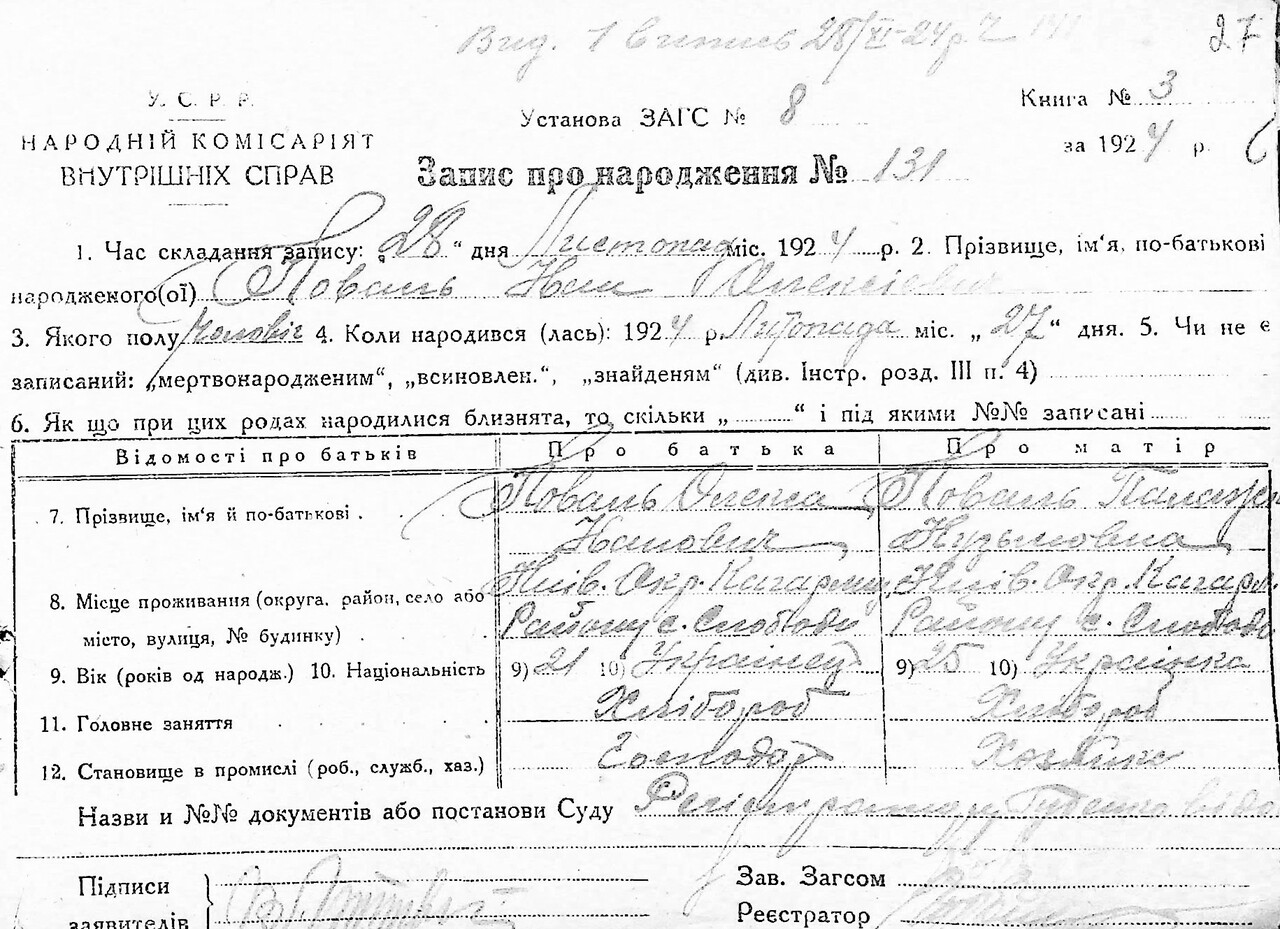 Вид. 1 випись 28/XI-24 р.
27
У. С. Р. Р.
НАРОДНІЙ КОМІСАРІЯТ
ВНУТРІШНІХ СПРАВ
Установа ЗАГС № 8
Книга № 3
за 1924 р.
Запис про народження № 131
1. Час складання запису: „28“ дня Листопад міс. 1924 р. 2. Прізвище, ім'я, по-батькові
народженого(ої) Коваль Іван Олексієвич
3. Якого полу чоловіч 4. Коли народився (лась): 1924 р. Листопада міс. „27“ дня. 5. Чи не є
записаний: „мертвонародженим“, „всиновлен.“, „знайденям“ (див. Інстр. розд. III п. 4)
6. Як що при цих родах народилися близнята, то скільки „ “ і під якими №№ записані
Відомості про батьків Про батька Про матір
7. Прізвище, ім'я й по-батькові . Коваль Олекса Коваль
Іванович Кузьмовна
8. Місце проживання (округа, район, село або Київ. Окр. Кагарл Київ. Окр. Кагарл
місто, вулиця, № будинку) . Району с. Слободи Району с. Слободи
9. Вік (років од народж.) 10. Національність 9) 21 10) Українец 9) 25 10) Українка
11. Головне заняття Хлібороб Хлібороб
12. Становище в промислі (роб., служб., хаз.) Господар Хозяйка
Назви и №№ документів або постанови Суду
Підписи
заявителів
Зав. Загсом
Реєстратор